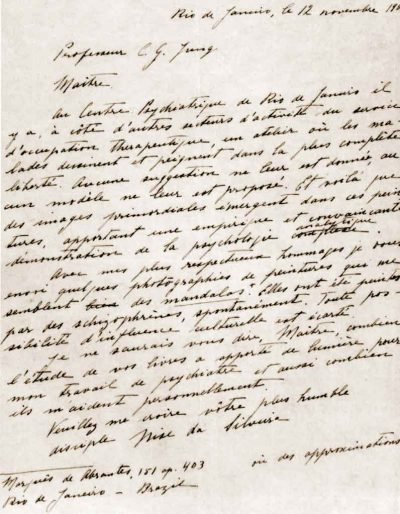 Rio de Janeiro, le 12 novembre 19
Professeur C. G. Jung
Maître
Au Centre Psychiatrique de Rio de Janeiro il
y a, à côté d'autres secteurs d'activité du service
d'occupation therapeutique, un atelier où les ma-
lades dessinent et peignent dans la plus complète
liberté. Aucune suggestion ne leur est donnée, au
cun modèle ne leur est proposé. Et voilà que
des images primordiales émergent dans ces pein
tures, apportant une empirique et convaincante
analytique
démonstration de la psychologie
Avec mes plus respectueux hommages je vous
envoi quelques photographies de peintures qui me
semblent des mandalas. Elles ont été peintes
par des schizophrènes, spontanément. Toute pos-
sibilité d'influence culturelle est écarté
Je ne saurais vous dire, Maître, combien
l'étude de vos livres a apporté de lumière pour
mon travail de psychiatre et aussi combien
ils m'aident personnellement.
Veuillez me croire vôtre plus humble
disciple Nise da Silveira
Marquês de Abrantes, 151 ap. 403
Rio de Janeiro - Brazil
ou des approximations